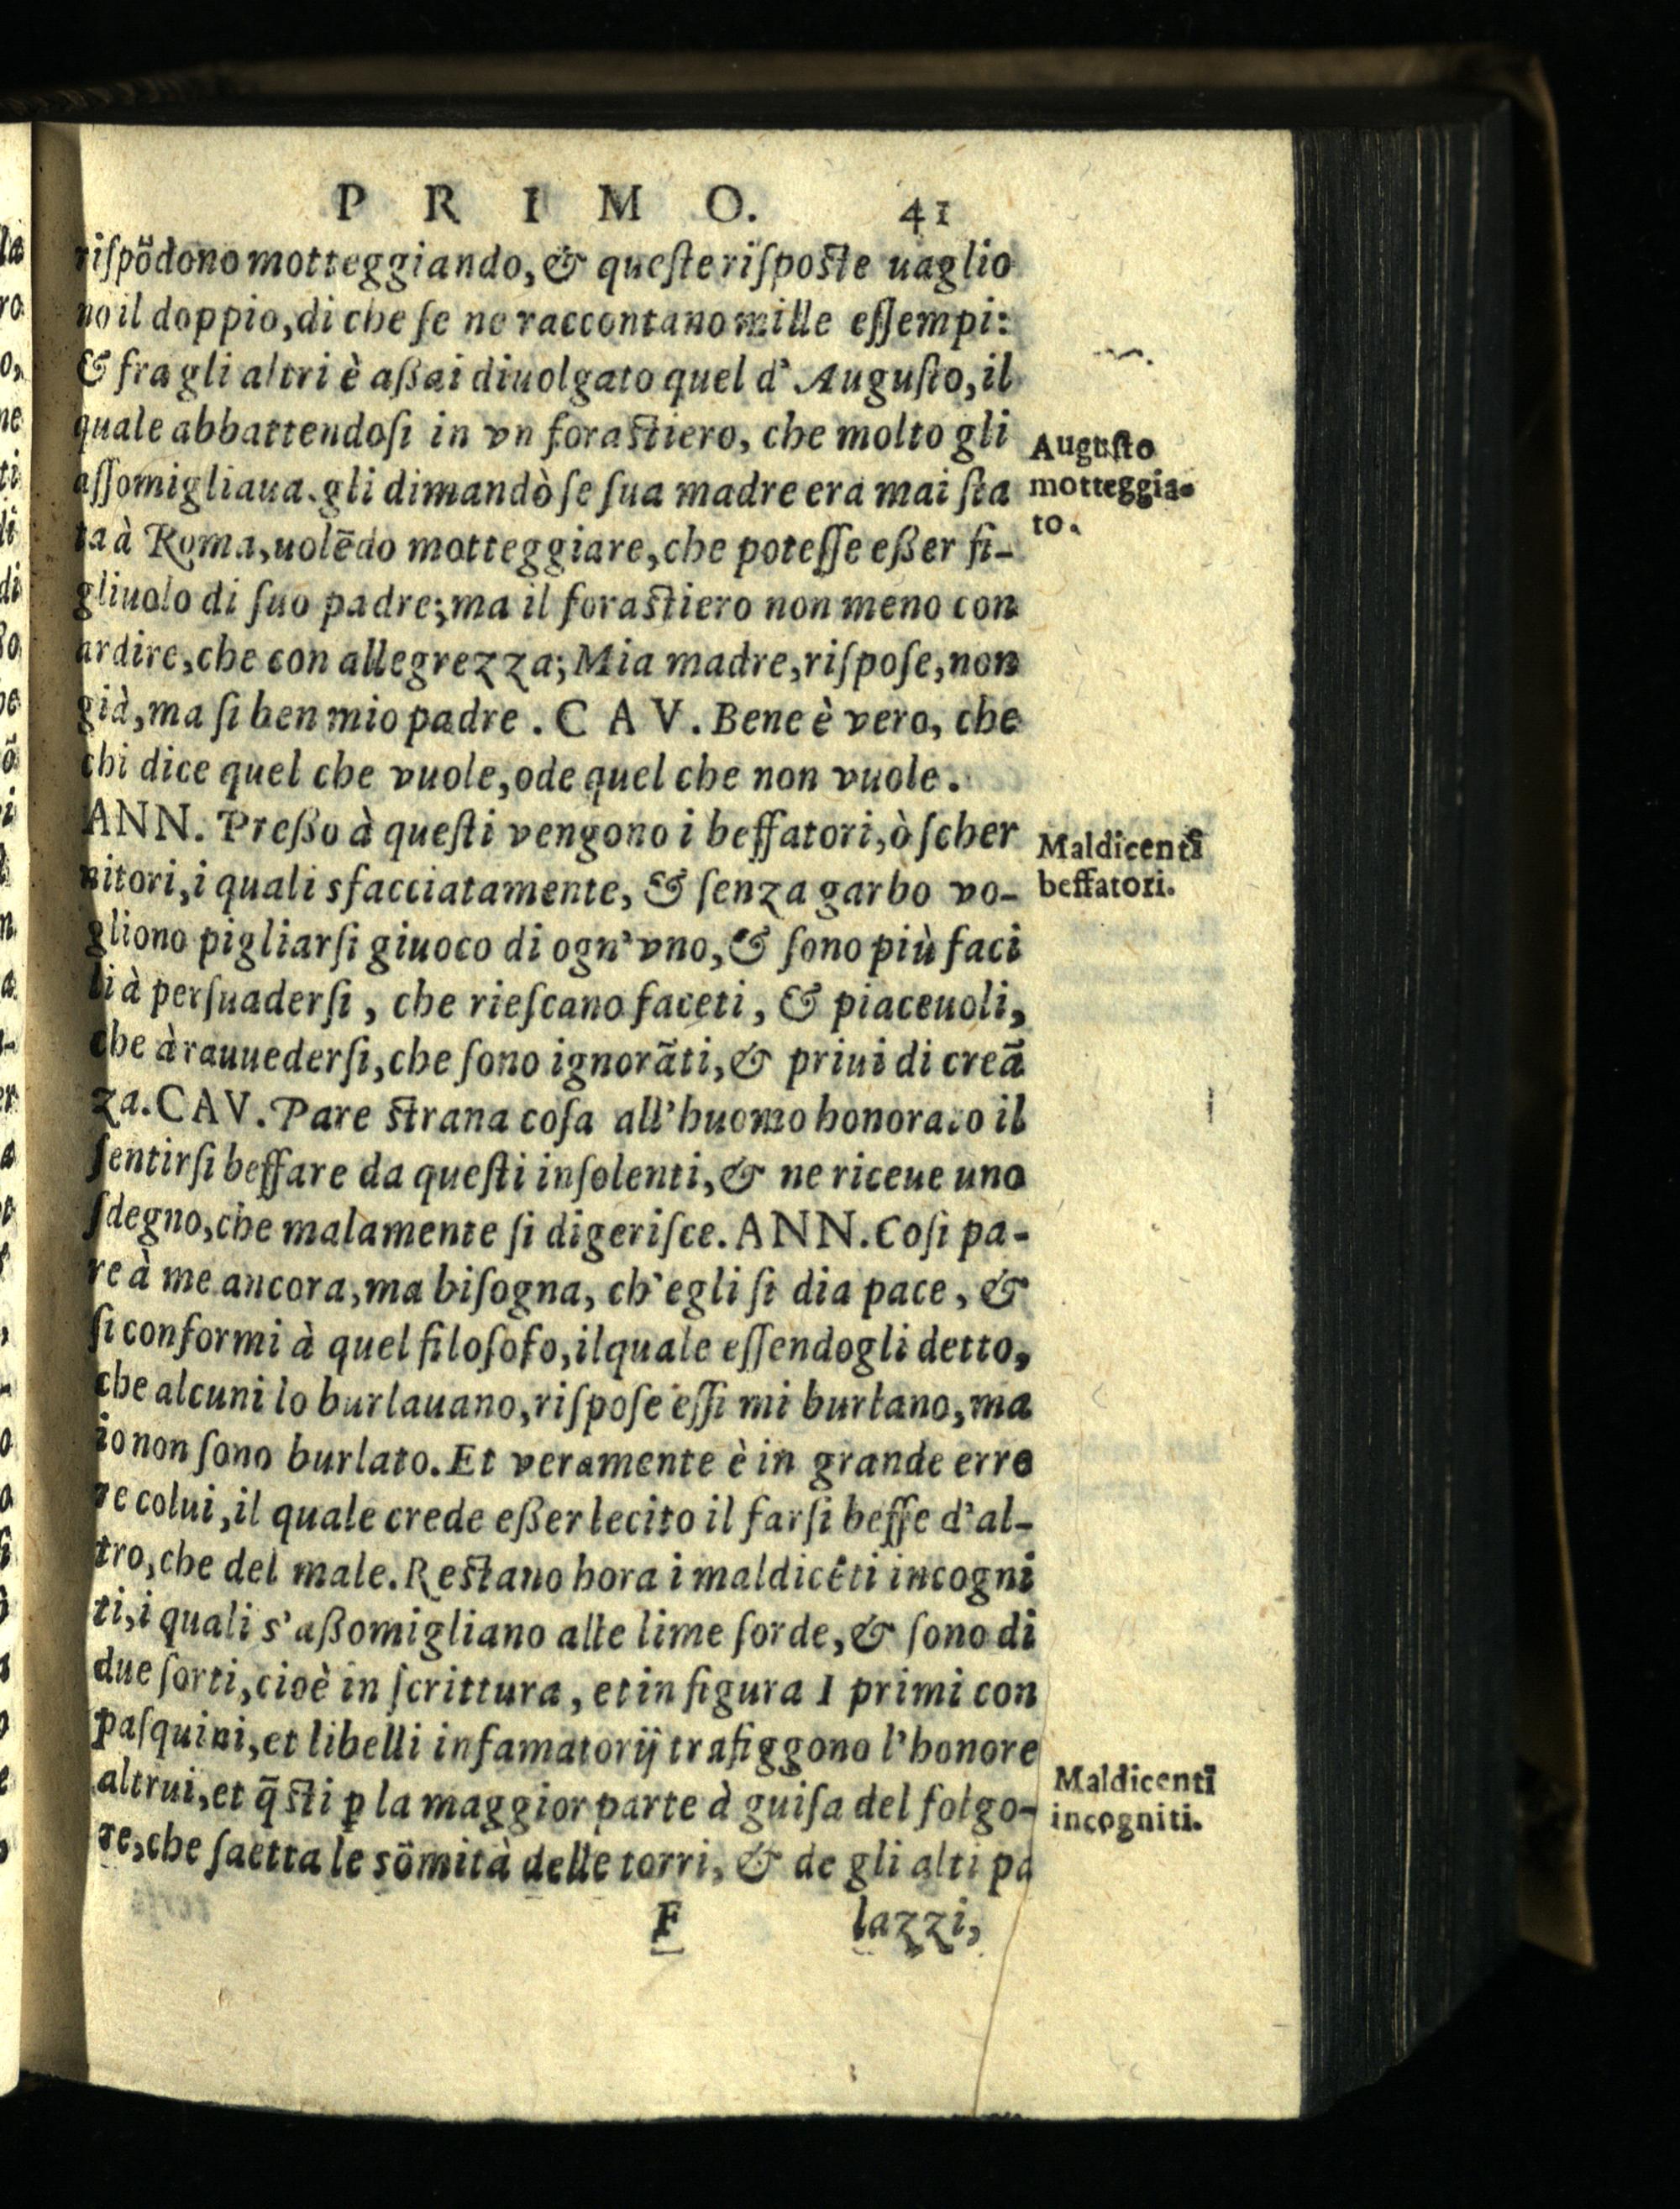 PRIMO. 41
riſpõdono motteggiando, & queſte riſpoſte uaglio
no il doppio, di che ſe ne raccontano mille eſſempi:
& fra gli altri è aßai diuolgato quel d'Auguſto, il
quale abbattendoſi in vn foraſtiero, che molto gli
aſſomigliaua. gli dimandò ſe ſua madre era mai ſta
ta à Roma, uolẽdo motteggiare, che poteſſe eßer fi-
gliuolo di ſuo padre; ma il foraſtiero non meno con
ardire, che con allegrezza; Mia madre, riſpoſe, non
già, ma ſi ben mio padre. CAV. Bene è vero, che
chi dice quel che vuole, ode quel che non vuole.
ANN. Preßo à queſti vengono i beffatori, ò ſcher
nitori, i quali sfacciatamente, & ſenza garbo vo-
gliono pigliarſi giuoco di ogn'vno, & ſono più faci
li à perſuaderſi, che rieſcano faceti, & piaceuoli,
che à rauuederſi, che ſono ignorãti, & priui di creã
za. CAV. Pare ſtrana coſa all'huomo honorato il
ſentirſi beffare da queſti inſolenti, & ne riceue uno
ſdegno, che malamente ſi digeriſce. ANN. Coſi pa-
re à me ancora, ma biſogna, ch'egli ſi dia pace, &
ſi conformi à quel filoſofo, ilquale eſſendogli detto,
che alcuni lo burlauano, riſpoſe eſſi mi burlano, ma
io non ſono burlato. Et veramente è in grande erro
re colui, il quale crede eßer lecito il farſi beffe d'al-
tro, che del male. Reſtano hora i maldicẽti incogni
ti, i quali s'aßomigliano alle lime ſorde, & ſono di
due ſorti, cioè in ſcrittura, et in figura I primi con
paſquini, et libelli infamatorij trafiggono l'honore
altrui, et q̃ſti ꝑ la maggior parte à guiſa del folgo-
re, che ſaetta le sõmità delle torri, & de gli alti pa
F lazzi,
Auguſto
motteggia-
to.
Maldicenti
beffatori.
Maldicenti
incogniti.